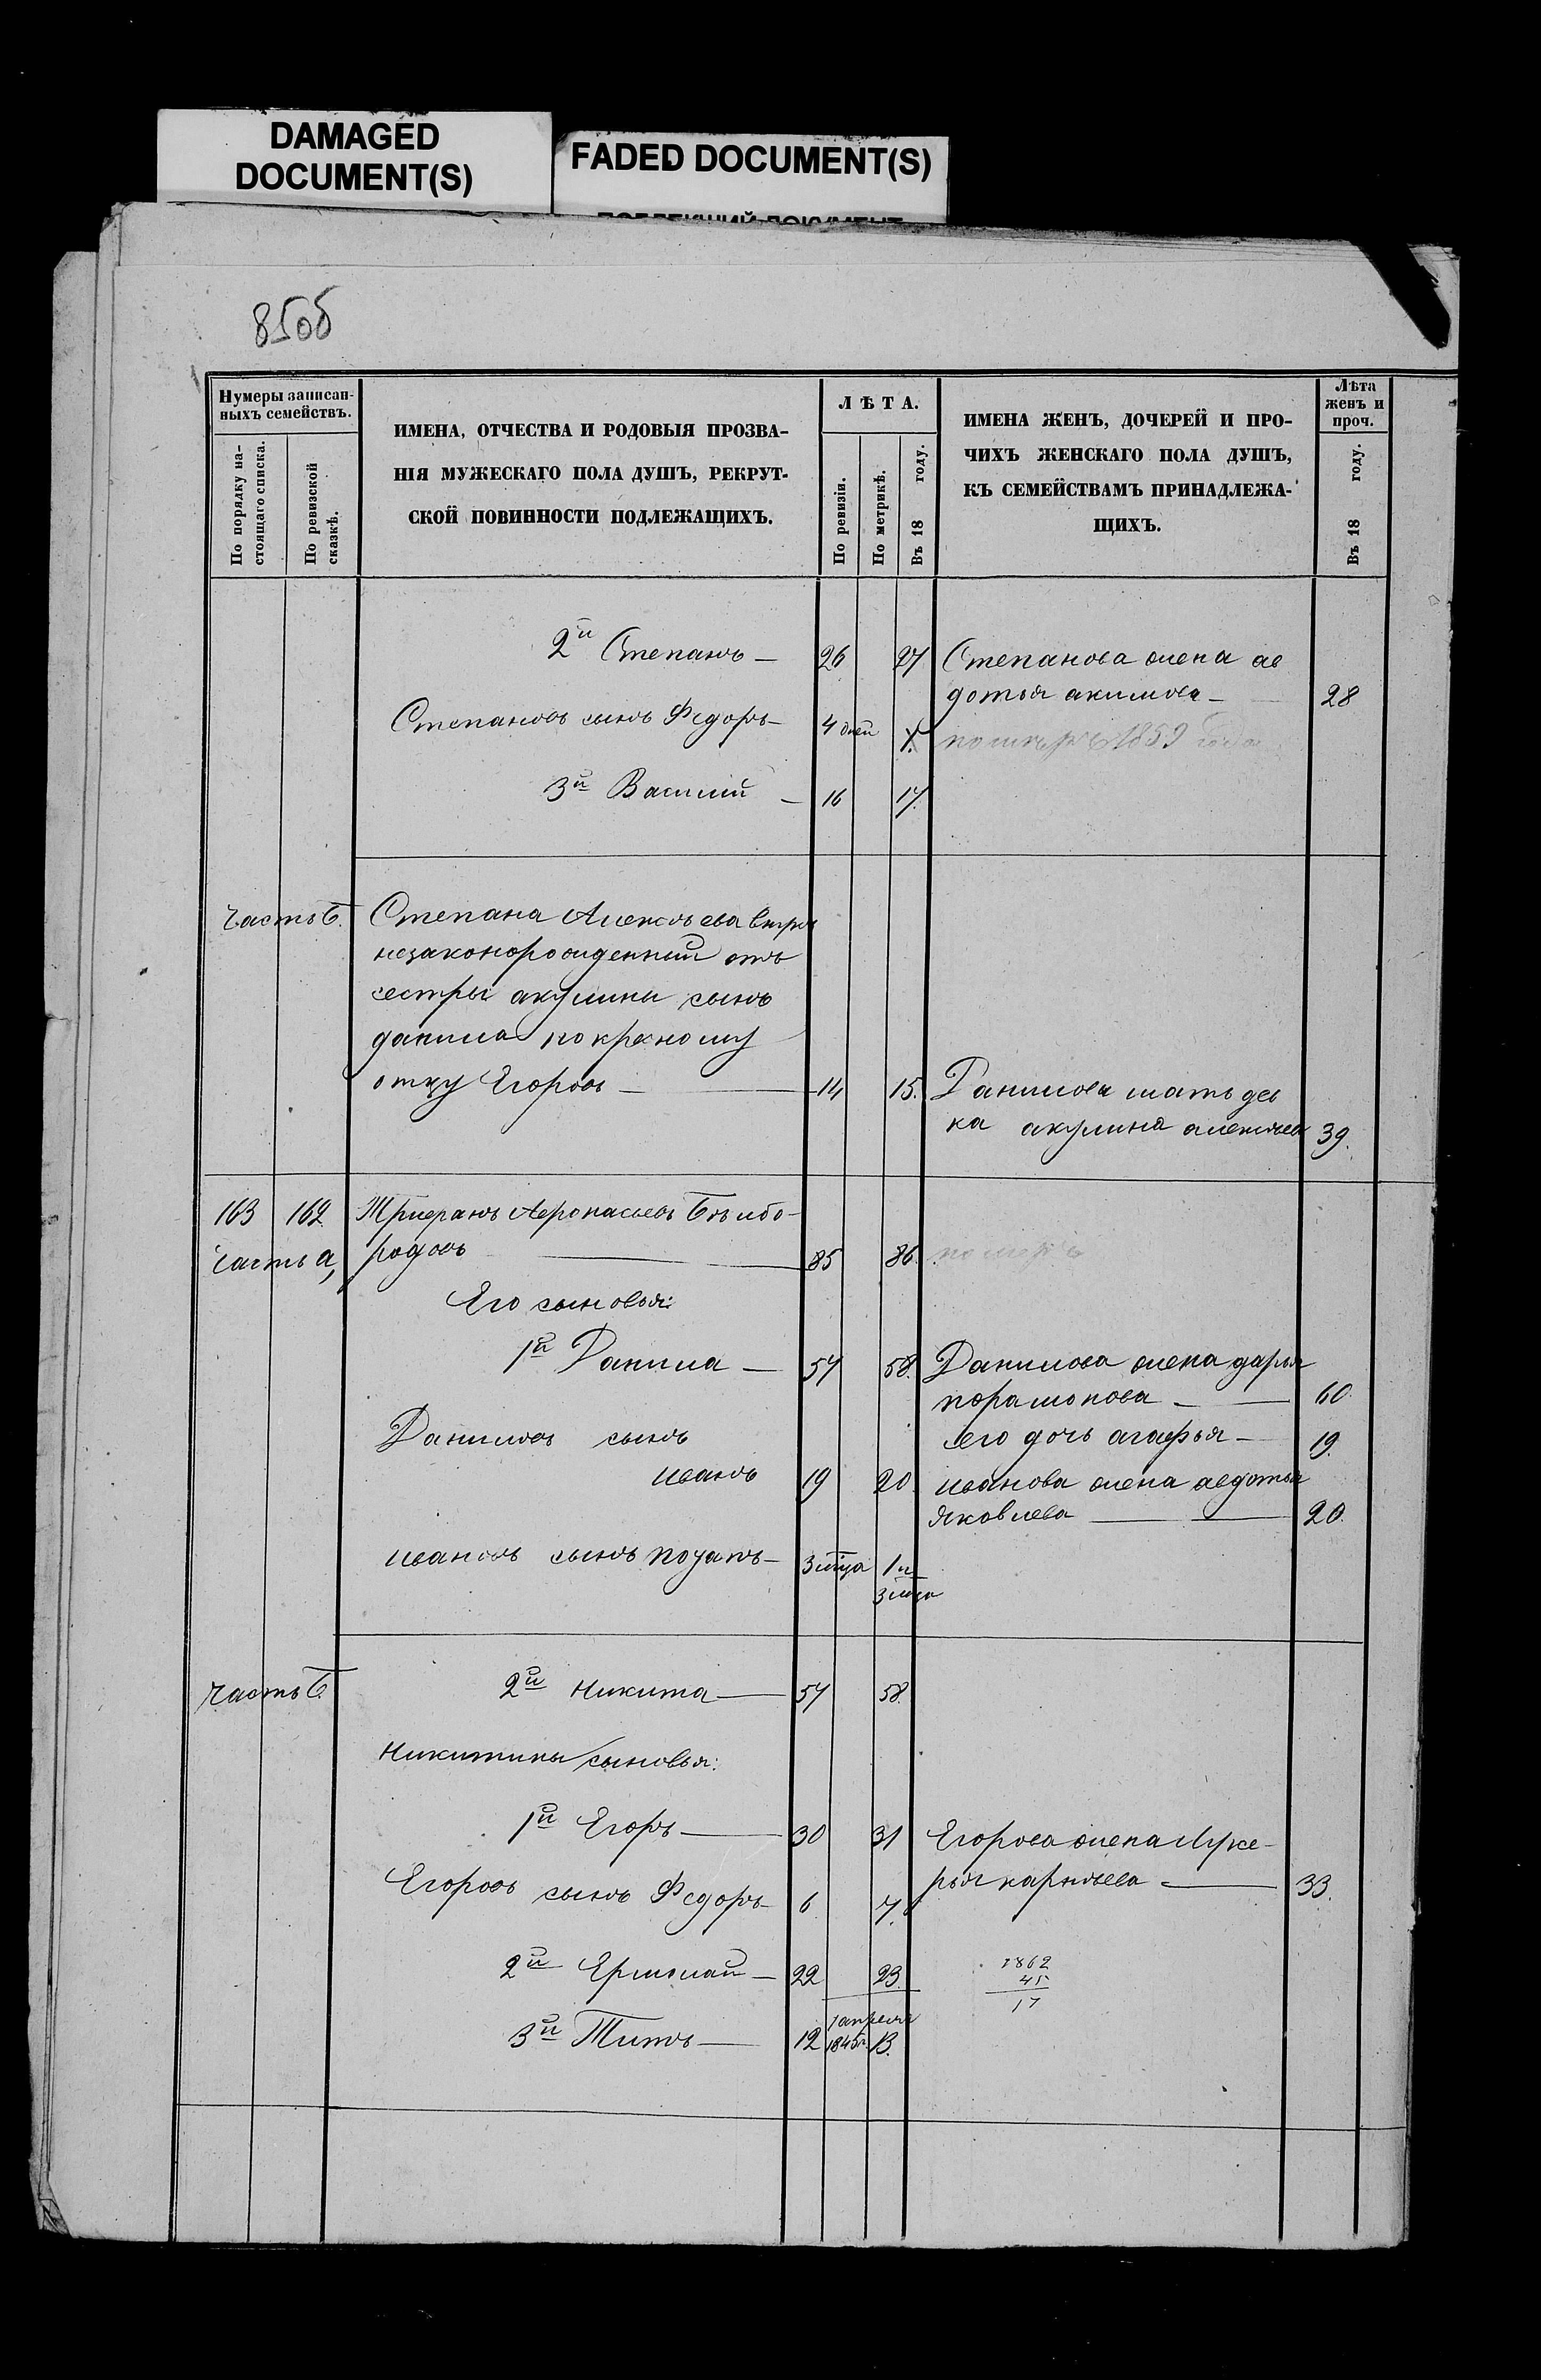 DAMAGED
DOCUMENT(S)
FADED DOCUMENT(S)
85об
Нумеры записан-
ныхъ семействъ.
По порядку на-
стоящаго списка.
По ревизской
сказкѣ.
ИМЕНА, ОТЧЕСТВА И РОДОВЫЯ ПРОЗВА-
НІЯ МУЖЕСКАГО ПОЛА ДУШЪ, РЕКРУТ-
СКОЙ ПОВИННОСТИ ПОДЛЕЖАЩИХЪ.
ЛѢТА.
По ревизіи.
По метрикѣ.
Въ 18 году.
ИМЕНА ЖЕНЪ, ДОЧЕРЕЙ И ПРО-
ЧИХЪ ЖЕНСКАГО ПОЛА ДУШЪ,
КЪ СЕМЕЙСТВАМЪ ПРИНАДЛЕЖА-
ЩИХЪ.
Лѣта
женъ и
проч.
Въ 18 году.
2й Степанъ — 26 27 Степанова жена ав
дотья акимова — 28
Степановъ сынъ Федоръ — 4 дней 1859 года
3й Василій — 16 17.
часть Б. Степана Алексѣева
незаконорожденный отъ
сестры акулины сынъ
данила покресному
отцу Егоровъ — 14 15. Данилова мать дев
ка акулина алексѣева 39.
163 162 Трифанъ Афонасьевъ Бѣлбо-
часть а, родовъ 85 86.
Его сыновья:
1й Данила — 57 58. Данилова жена дарья
порамонова — 60
Даниловъ сынъ его дочь агафья — 19.
иванъ 19 20. иванова жена авдотья
яковлева — 20.
ивановъ сынъ потапъ — 3 мца 1 и
3 мца
часть Б 2й никита — 57 58.
никитины сыновья:
1й Егоръ — 30 31 Егорова жена луке-
рья карнѣева — 33.
Егоровъ сынъ Федоръ 6 7.
2й Ермолай — 22 23. 1862
45
17
1 апреля
3й Титъ — 12 1845г. 13.